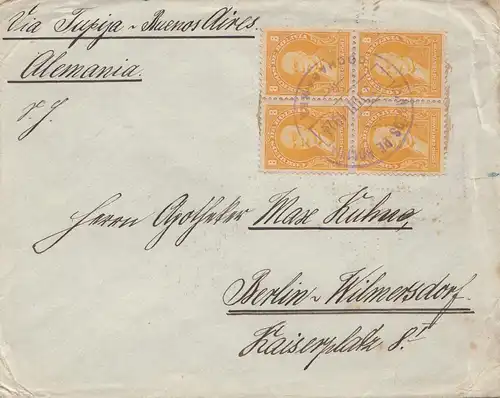 Via Tupiza - Buenos Aires.
Alemania.
8 8
8 8
8 8
8 8
Herrn Apotheker Max Kühne,
Berlin - Wilmersdorf.
Kaiserplatz 8I